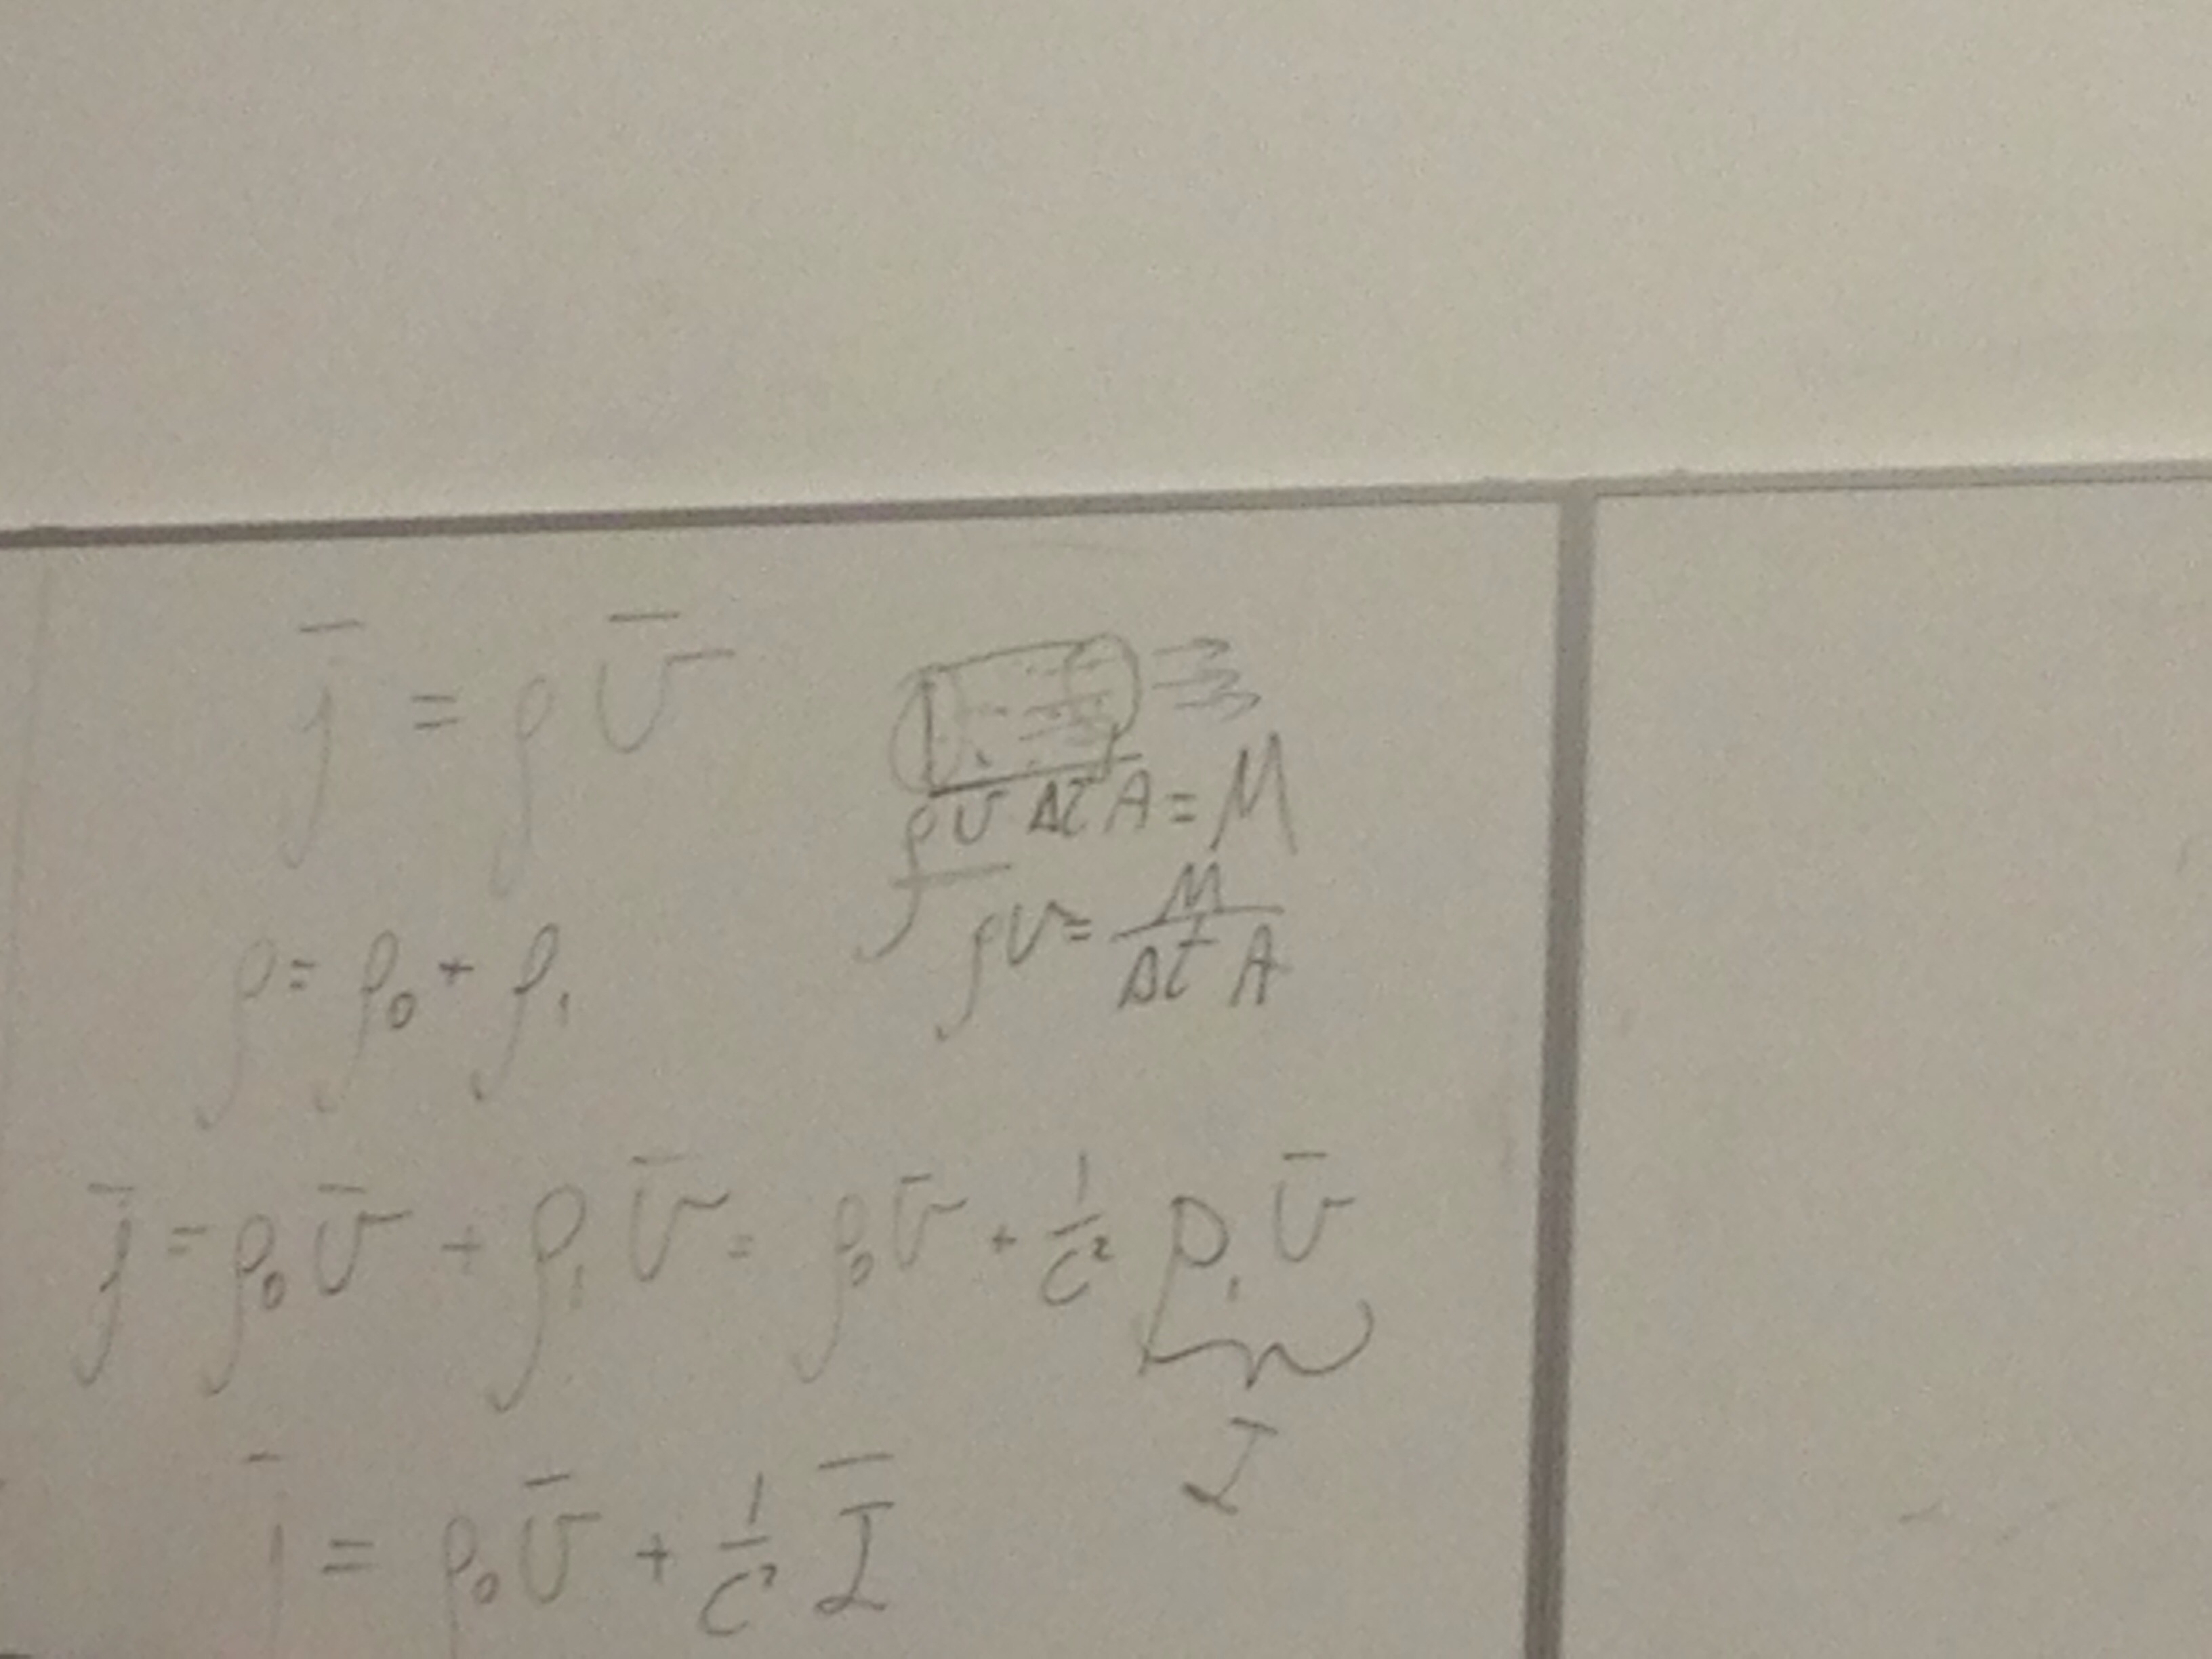 j̄ = ρ v̄
ρ v Δt A = M
ρ v = M / Δt A
ρ = ρ₀ + ρ₁
j̄ = ρ₀ v̄ + ρ₁ v̄ = ρ₀ v̄ + 1/c² p₁ v̄
I
j̄ = ρ₀ v̄ + 1/c² Ī